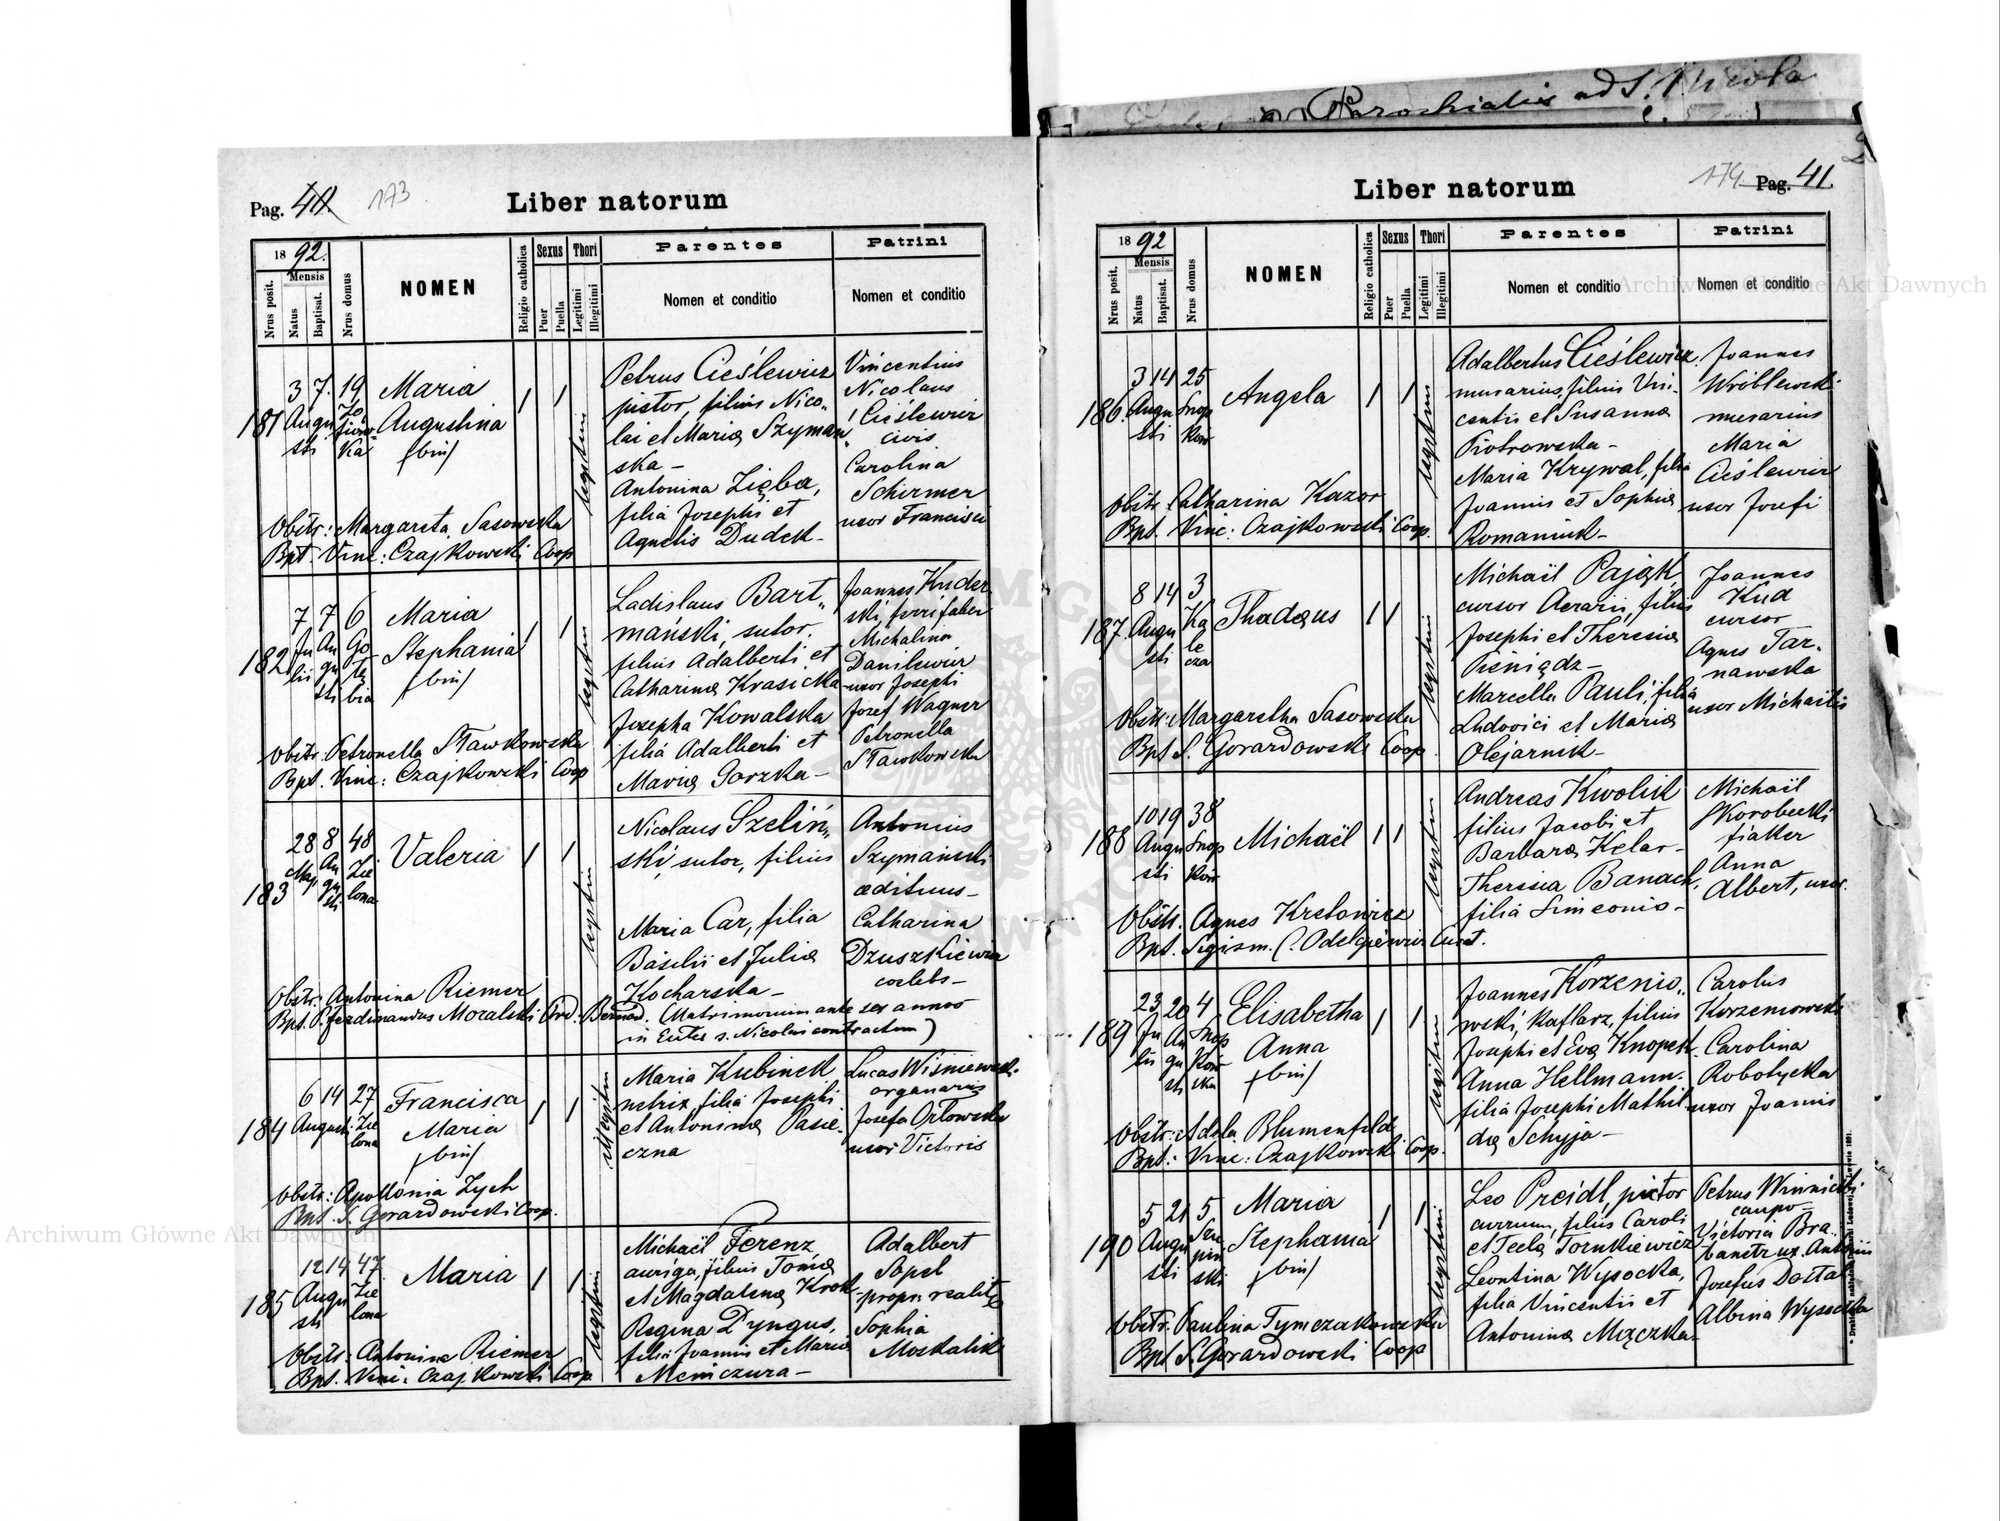 Parochialis ad S. Nicola
Pag. 40. 173
Liber natorum
18 92.
Mensis
Nrus posit.
Natus
Baptisat.
Nrus domus
NOMEN
Religio catholica
Sexus
Puer
Puella
Thori
Legitimi
Illegitimi
Parentes
Nomen et conditio
Patrini
Nomen et conditio
181
3 7. 19
Augu
sti
Zo
fiow
ka
Maria
Augustina
(bin)
1 1
legitimi
Petrus Cieślewicz
pistor, filius Nico„
lai et Mariæ Szyman„
ska –
Antonina Zięba,
filia Josephi et
Agnetis Dudek –
Vincentius
Nicolaus
Cieślewicz
civis
Carolina
Schirmer
uxor Francisci
Obstr: Margareta Sasowska
Bpt. Vinc: Czajkowski Coop
182
7 7 6
Ju
lii
Au
gu
sti
Go
łę
bia
Maria
Stephania
(bin)
1 1
legitimi
Ladislaus Bart„
mański, sutor,
filius Adalberti et
Catharinæ Krasicka
Josepha Kowalska
filia Adalberti et
Mariæ Gorzka –
Joannes Kuder
ski, ferri faber
Michalina
Danilewicz
uxor Josephi
Josef Wagner
Petronella
Sławkowska
Obstr. Petronella Sławkowska
Bpt. Vinc: Czajkowski Coop
183
28 8 48
Maj
Au
gu
sti
Zie
lona
Valeria
1 1
legitimi
Nicolaus Szeliń„
ski, sutor, filius
Maria Car, filia
Basilii et Juliæ
Kocharska –
(Matrimonium ante sex annos
in Eccles s. Nicolai contractum)
Antonius
Szymański
ædituus –
Catharina
Dzuszkiewicz
coelebs –
Obstr: Antonina Riemer
Bpt. P. Ferdinandus Moralski Ord. Bernad.
184
6 14 27
Augusti
Zie
lona
Francisca
Maria
(bin)
1 1
illegitim
Maria Kubinek
netrix, filia Josephi
et Antoninæ Pasie„
czna
Lucas Wiśniewski
organarius
Josefa Orłowska
uxor Victoris
Obstr: Apollonia Zych
Bpt. S. Gerardowski Coop.
185
12 14 47
Augu
sti
Zie
lona
Maria
1 1
legitimi
Michaël Ferenz,
auriga, filius Tomæ
et Magdalenæ Krok
Regina Dyngus,
filia Joannis et Mariæ
Meniczura –
Adalbert
Sopel
propr. realit
Sophia
Moskalik
Obstr: Antonina Riemer
Bpt. Vinc: Czajkowski Coop
174 Pag. 41.
Liber natorum
18 92
Mensis
Nrus posit.
Natus
Baptisat.
Nrus domus
NOMEN
Religio catholica
Sexus
Puer
Puella
Thori
Legitimi
Illegitimi
Parentes
Nomen et conditio
Patrini
Nomen et conditio
186.
3 14 25
Augu
sti
Snop
ków
Angela
1 1
legitimi
Adalbertus Cieślewicz
musarius, filius Vin„
centii et Susannæ
Piotrowska –
Maria Krywal, filia
Joannis et Sophiæ
Romaniuk –
Joannes
Wróblewski
musarius
Maria
Cieślewicz
uxor Josefi
Obstr. Catharina Kazor
Bpt. Vinc: Czajkowski Coop.
187.
8 14 3
Augu
sti
Ka
le
cza
Thadæus
1 1
legitimi
Michaël Pająk,
cursor Aerarii, filius
Josephi et Theresiæ
Pieniądz –
Marcella Pauli, filia
Ludovici et Mariæ
Olejarnik –
Joannes
Kud
cursor
Agnes Tar„
nawska
uxor Michaëlis
Obstr. Margaretha Sasowska
Bpt S. Gerardowski Coop
188
10 19 38
Augu
sti
Snop
ków
Michaël
1 1
legitimi
Andreas Kwolik
filius Jacobi et
Barbaræ Kelar –
Theresia Banach,
filia Simeonis –
Michaël
Skorobecki
fiakier
Anna
Albert, uxor.
Obstr. Agnes Kretowicz
Bpt. Sigism. Odelgiewicz Curat.
189
23 20 4
Ju
lii
Au
gu
sti
Snop
ków
ska
Elisabetha
Anna
(bin)
1 1
legitimi
Joannes Korzenio„
wski, kaflarz, filius
Josephi et Evæ Knopek.
Anna Hellmann.
filia Josephi Mathil„
dæ Schyja –
Carolus
Korzeniowski
Carolina
Robotycka
uxor Joannis
Obstr: Adela Blumenfeld
Bpt: Vinc: Czajkowski Coop.
190
5 21 5
Augu
sti
ski
Maria
Stephania
(bin)
1 1
legitimi
Leo Preidl, pictor
currum, filius Caroli
et Teclæ Tornkiewicz
Leontina Wysocka,
filia Vincentii et
Antoninæ Mączka
Petrus Winnicki
caupo –
Victoria Bra„
Josefus Dostal
Albina Wysocka
Obstr. Paulina Tymczakowska
Bpt S. Gerardowski Coop
Archiwum Główne Akt Dawnych
Archiwum Główne Akt Dawnych